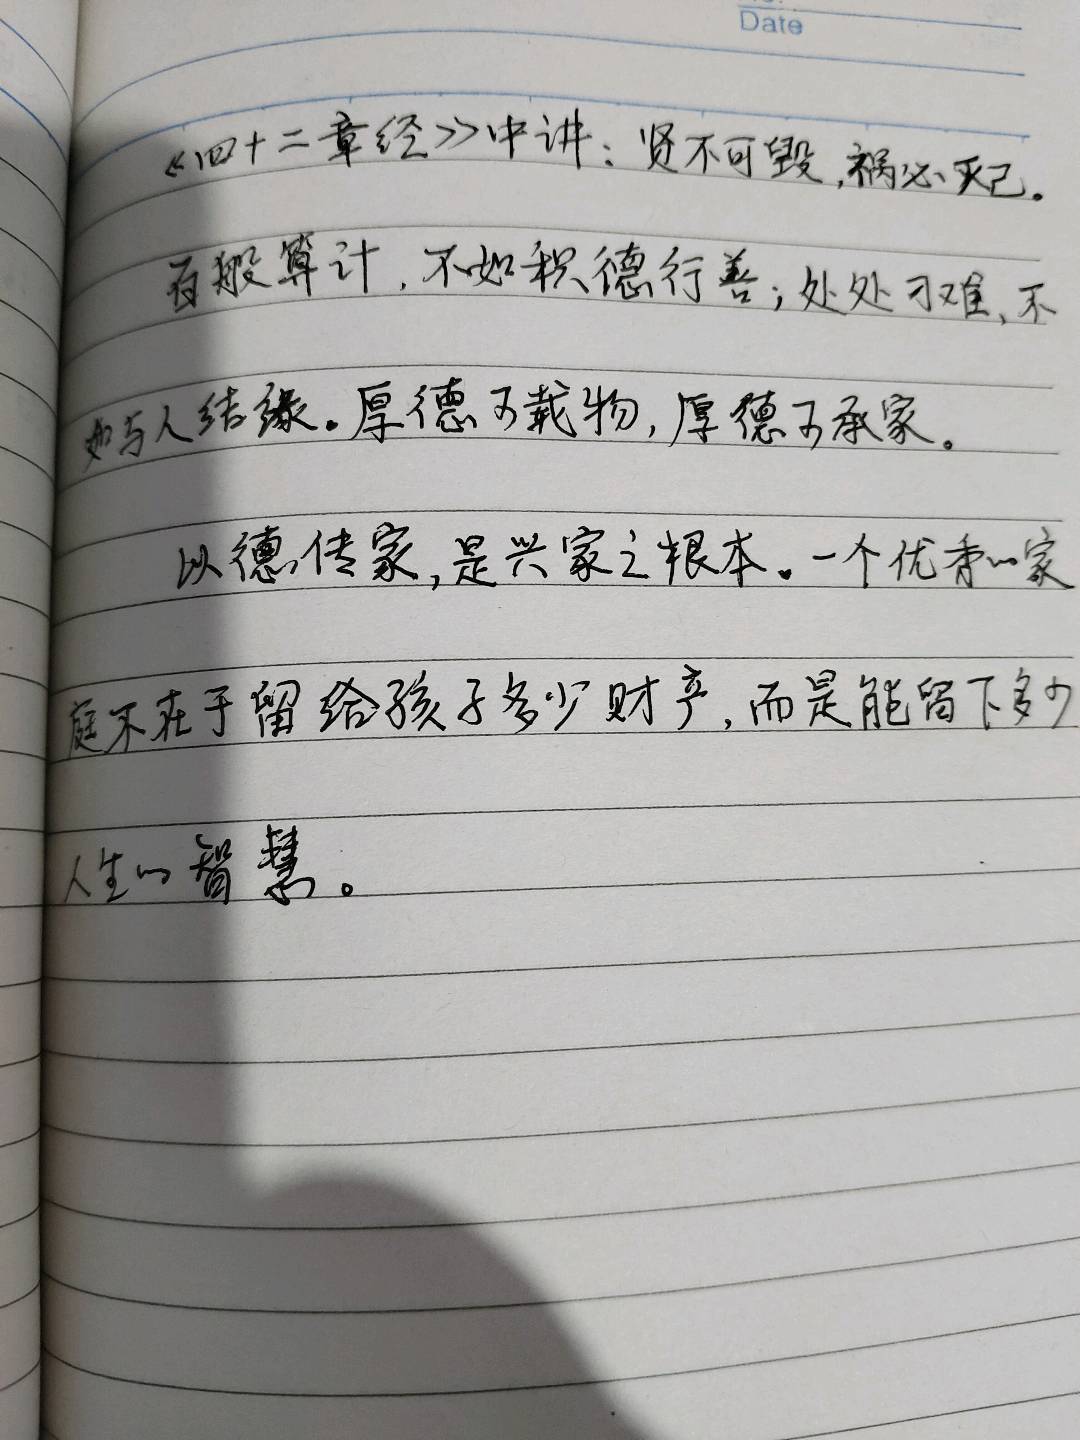 Date
《四十二章经》中讲：贤不可毁，祸必灭己。
百般算计，不如积德行善；处处刁难，不
如与人结缘。厚德可载物，厚德可承家。
以德传家，是兴家之根本。一个优秀的家
庭不在于留给孩子多少财产，而是能留下多少
人生的智慧。